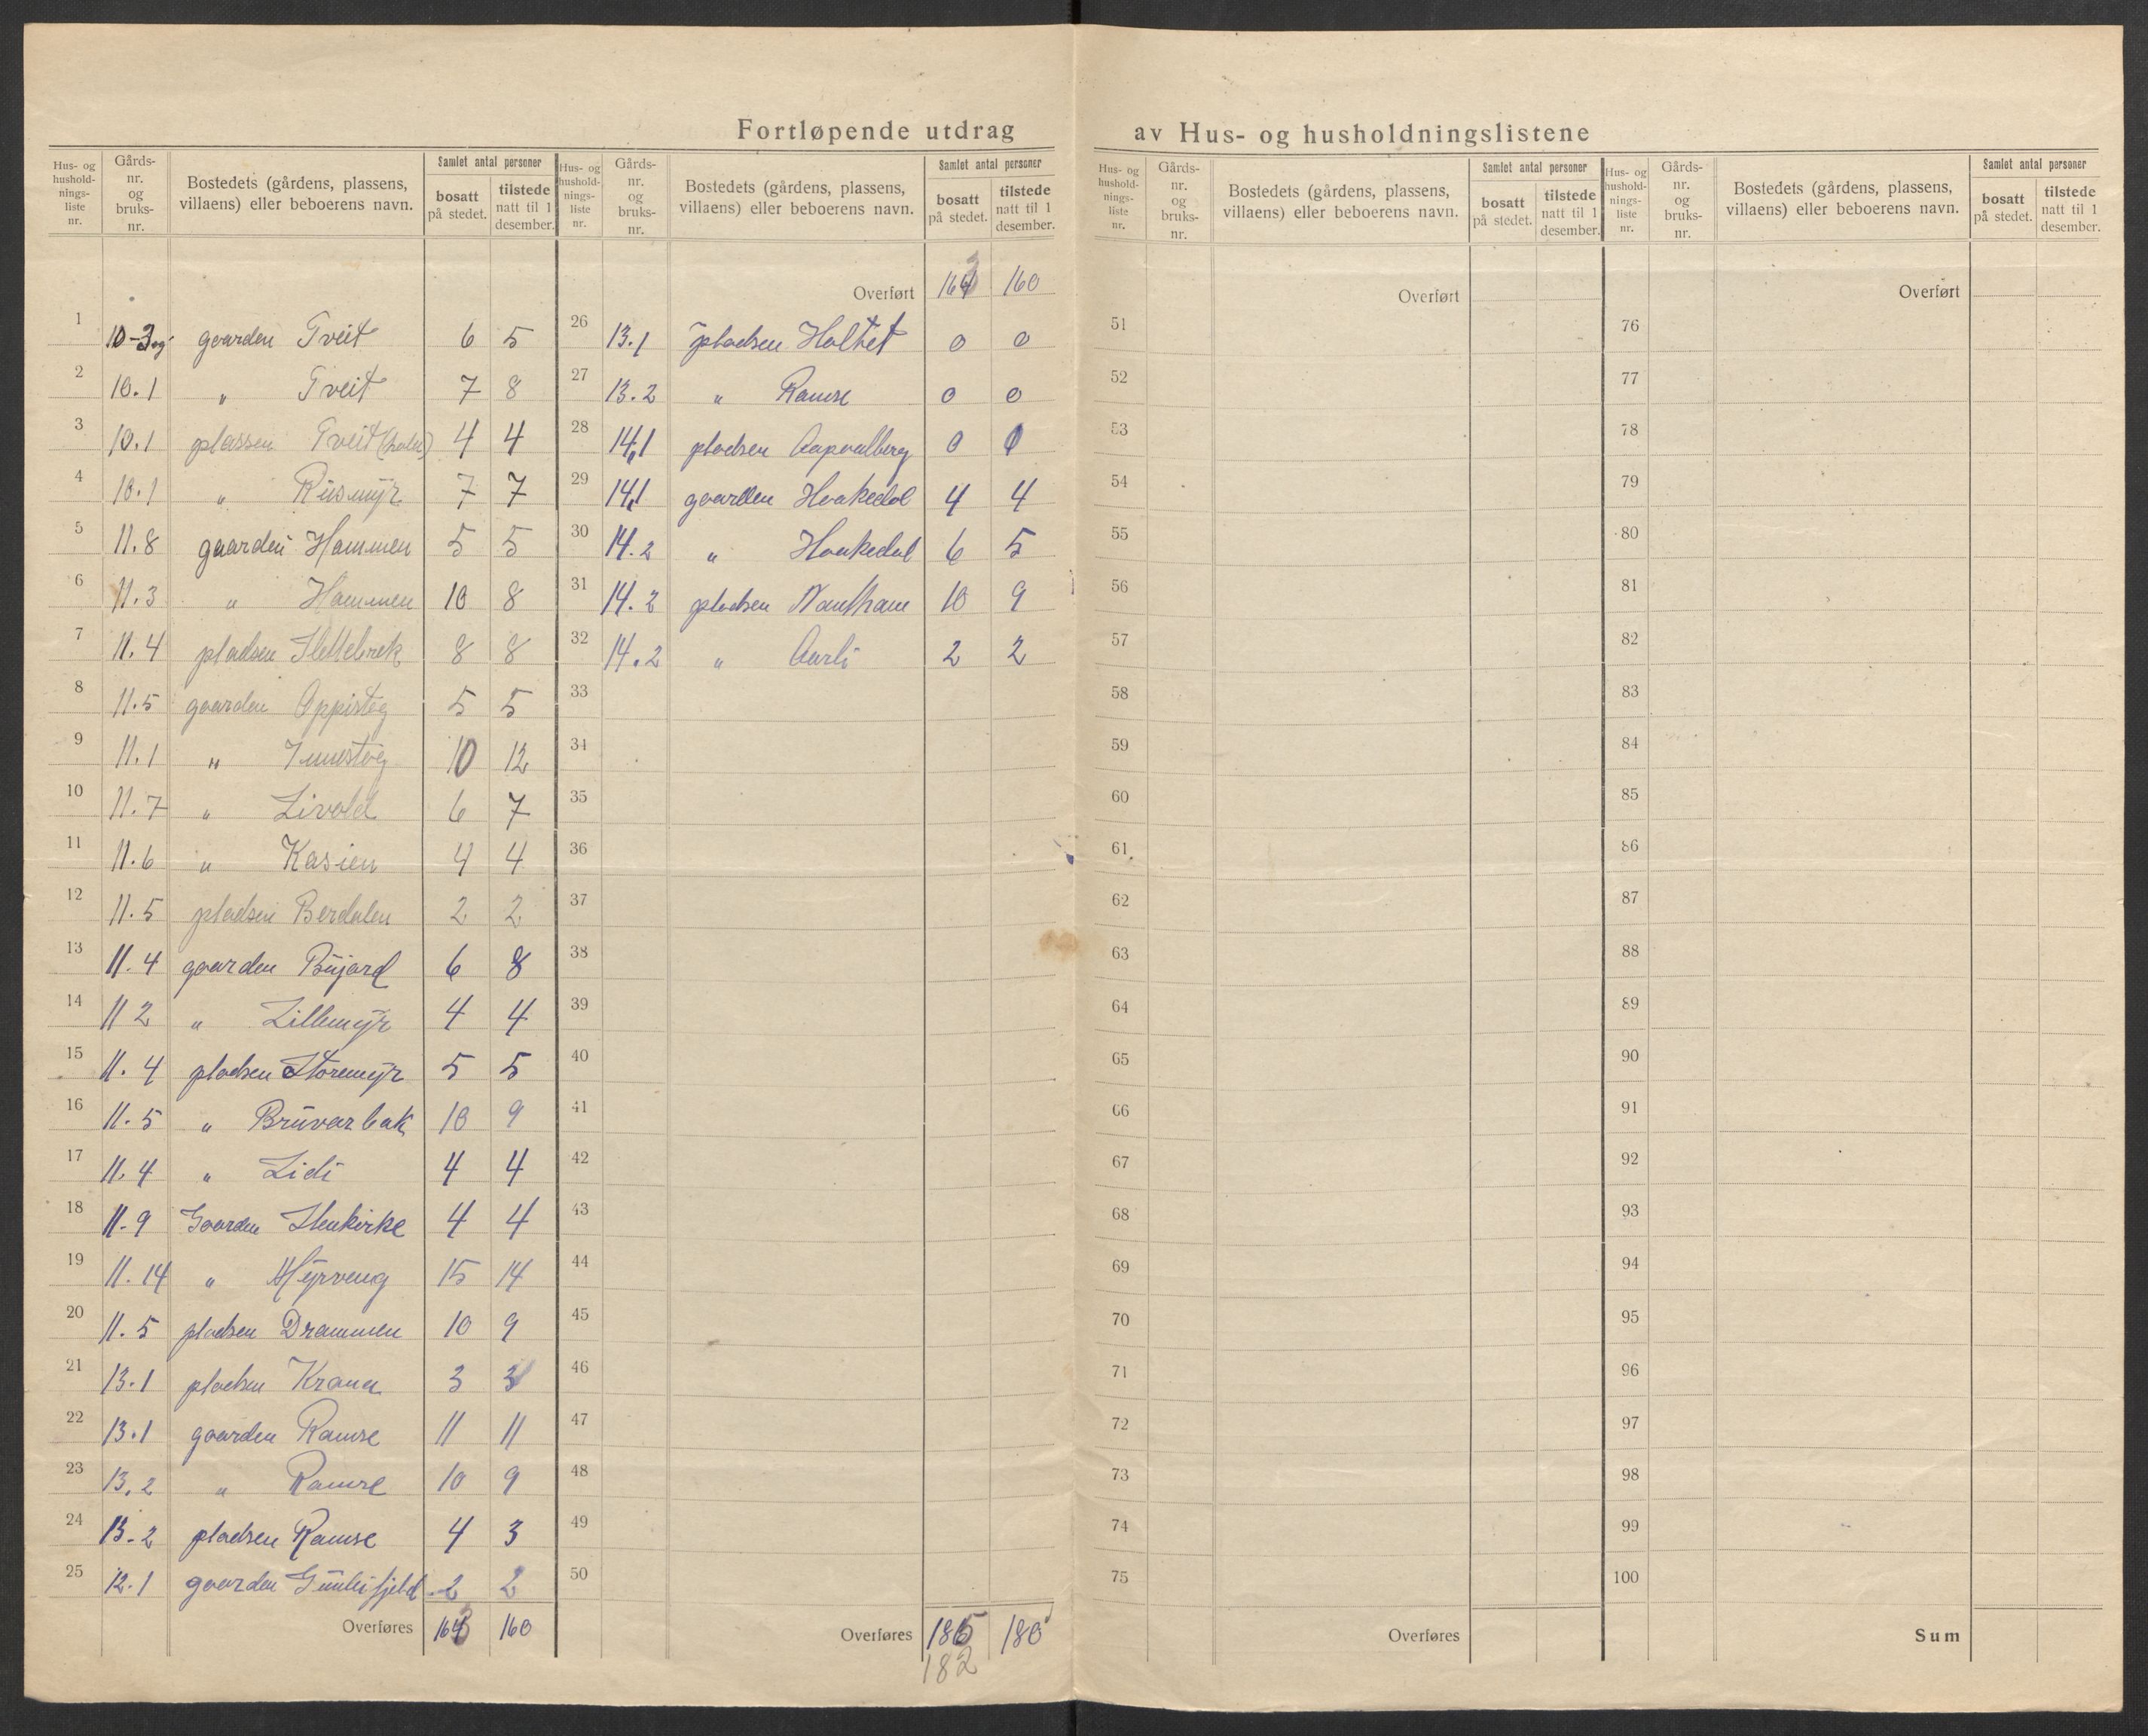 Fortløpende utdrag av Hus- og husholdningslistene
Hus- og hushold-nings-liste nr. | Gårds-nr. og bruks-nr. | Bostedets (gårdens, plassens, villaens) eller beboerens navn. | Samlet antal personer | bosatt på stedet. | tilstede natt til 1 desember.
1 10-3 og gaarden Tveit 6 5
2 10.1 " Tveit 7 8
3 10.1 plassen Tveit 4 4
4 10.1 " Rusmyr 7 7
5 11.8 gaarden Hommen 5 5
6 11.3 " Hommen 10 8
7 11.4 pladsen 8 8
8 11.5 gaarden Oppistog 5 5
9 11.1 " Innistog 10 12
10 11.7 " Livold 6 7
11 11.6 " Kasien 4 4
12 11.5 pladsen Berdalen 2 2
13 11.4 gaarden Bujord 6 8
14 11 2 " Lillemyr 4 4
15 11.4 pladsen Storemyr 5 5
16 11.5 " Bruvarbak 10 9
17 11.4 " Lidi 4 4
18 11.9 Gaarden Stenkirke 4 4
19 11.14 " Myrveng 15 14
20 11.5 pladsen Drammen 10 9
21 13.1 pladsen Krana 3 3
22 13.1 gaarden Ramse 11 11
23 13.2 " Ramse 10 9
24 13-2 pladsen Ramse 4 3
25 12.1 gaarden Gunleifjeld 2 2
Overføres 163 160
Hus- og hushold-nings-liste nr. | Gårds-nr. og bruks-nr. | Bostedets (gårdens, plassens, villaens) eller beboerens navn. | Samlet antal personer | bosatt på stedet. | tilstede natt til 1 desember.
Overført 163 160
26 13.1 pladsen Holtet 0 0
27 13.2 " Ramse 0 0
28 14.1 pladsen 0 0
29 14.1 gaarden Haakedal 4 4
30 14.2 " Haakedal 6 5
31 14.2 pladsen Nautham 10 9
32 14.2 " Aarli 2 2
33
34
35
36
37
38
39
40
41
42
43
44
45
46
47
48
49
50
Overføres 185 180
182
Hus- og hushold-nings-liste nr. | Gårds-nr. og bruks-nr. | Bostedets (gårdens, plassens, villaens) eller beboerens navn. | Samlet antal personer | bosatt på stedet. | tilstede natt til 1 desember.
Overført
51
52
53
54
55
56
57
58
59
60
61
62
63
64
65
66
67
68
69
70
71
72
73
74
75
Overføres
Hus- og hushold-nings-liste nr. | Gårds-nr. og bruks-nr. | Bostedets (gårdens, plassens, villaens) eller beboerens navn. | Samlet antal personer | bosatt på stedet. | tilstede natt til 1 desember.
Overført
76
77
78
79
80
81
82
83
84
85
86
87
88
89
90
91
92
93
94
95
96
97
98
99
100
Sum